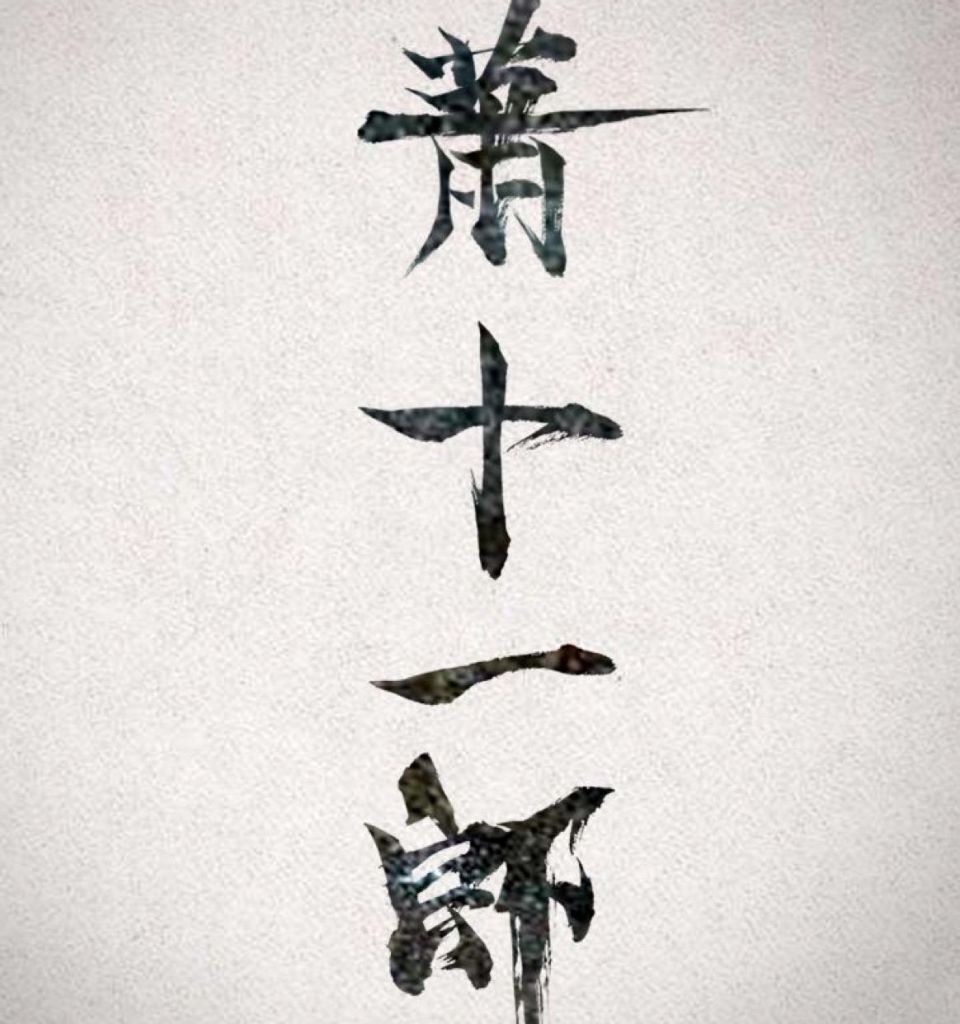 萧十一郎